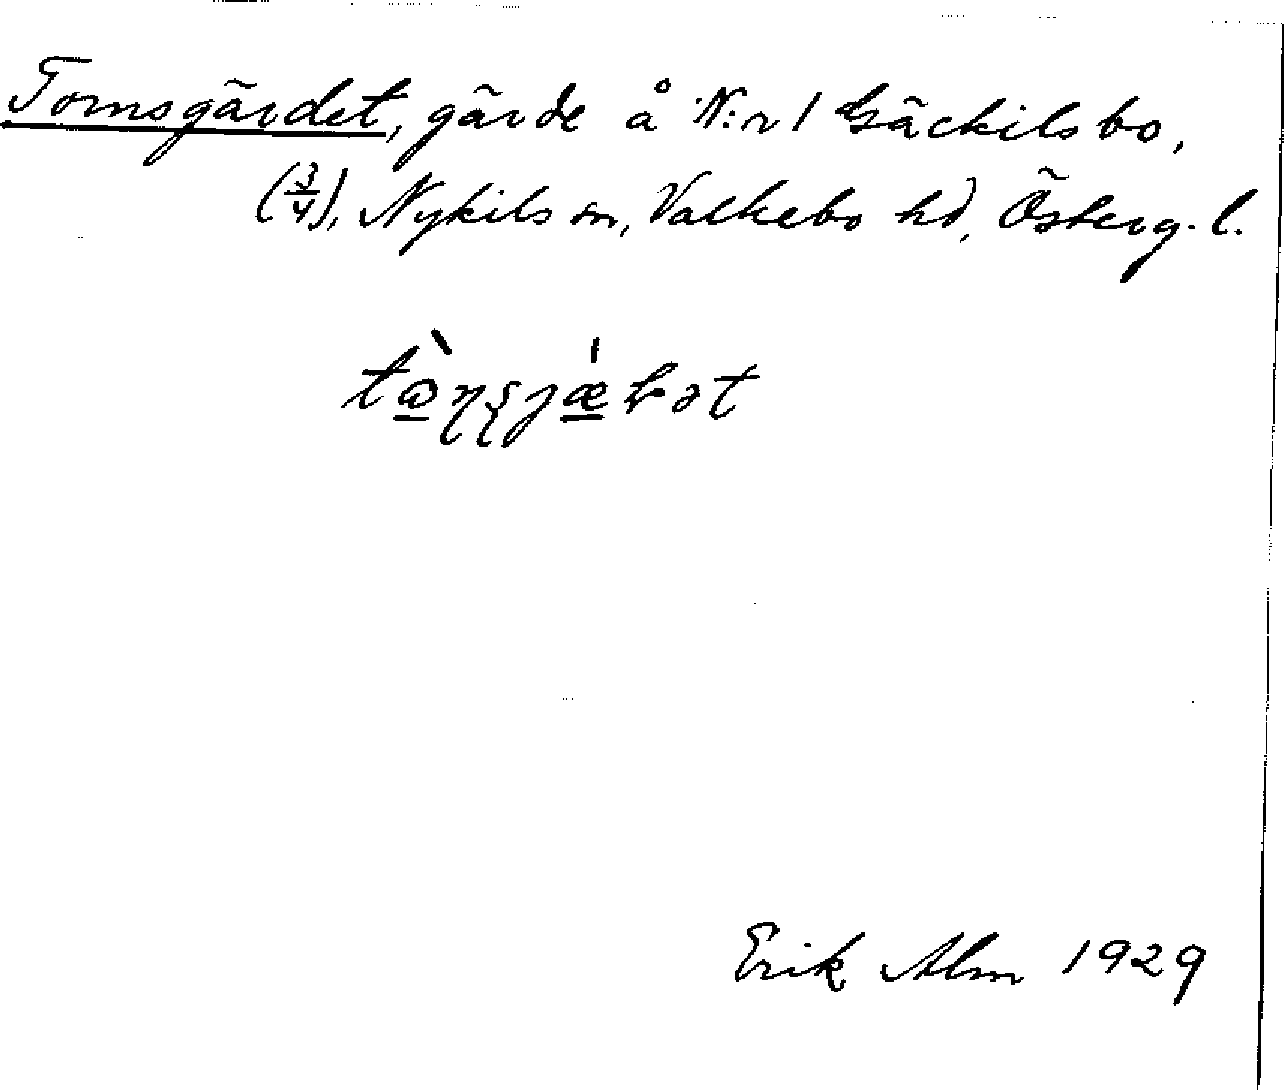 Tornsgärdet, gärde å N:r 1 Gäckilsbo,
(3/4), Nykils sn, Valkebo hd, Österg. l.
tɷ̠̀ɳʂjæ̠̍ɽət
Erik Alm 1929